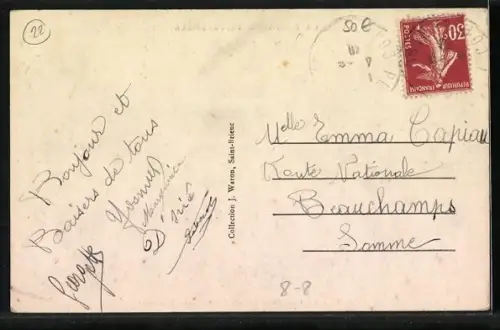 22
50€
30c
POSTES
REPUBLIQUE FRANÇAISE
Bonjour et
Baisers de tous
Yvonne
Désiré
Collection J. Waron, Saint-Brieuc
Melle Emma Capiau
Route Nationale
Beauchamps
Somme
8-8